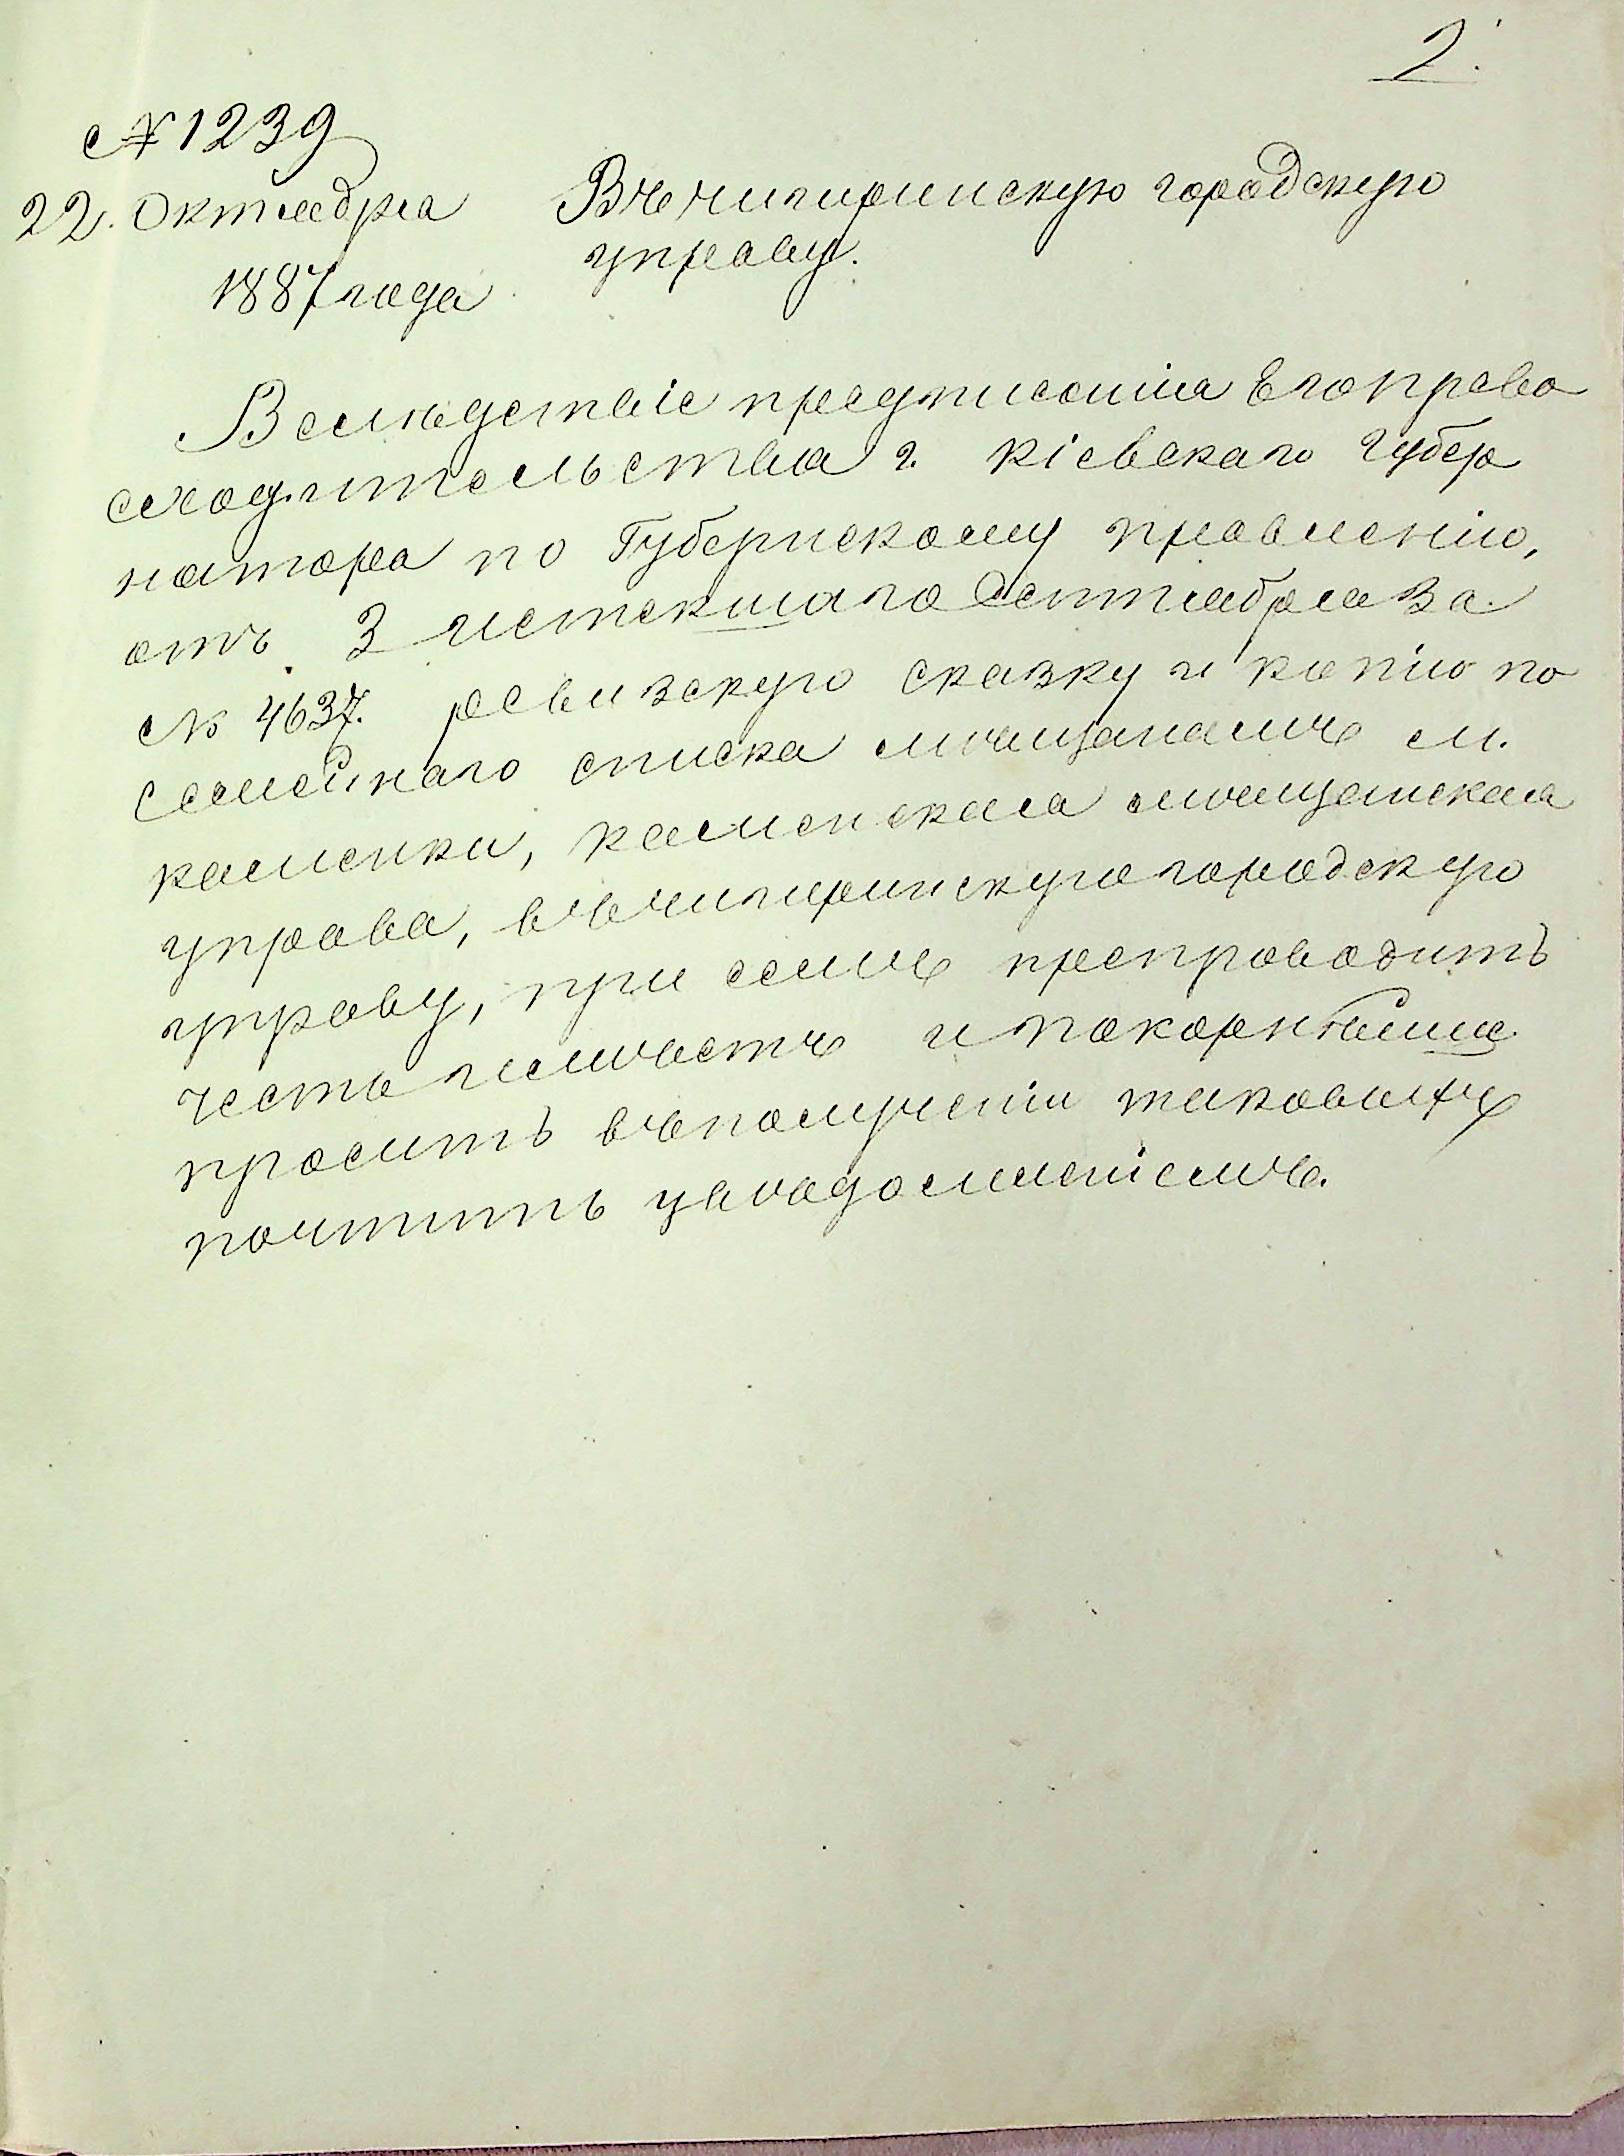 2.
№ 1239
22. Октября
1887 года
Въ чигиринскую городскую
управу.
Вслѣдствіе предписанія Его прево
сходительства г. кіевскаго Губер
натора по Губернскому правленію,
отъ 3 истекшаго Сентября за
№ 4637. ревизскую сказку и копію по
семейнаго списка мѣщанамъ м.
каменки, каменская мѣщанская
управа, въ чигиринскую городскую
управу, при семъ препроводить
честь имѣетъ и покорнѣйше
просить въ полученіи таковыхъ
почтить увѣдомленіемъ.